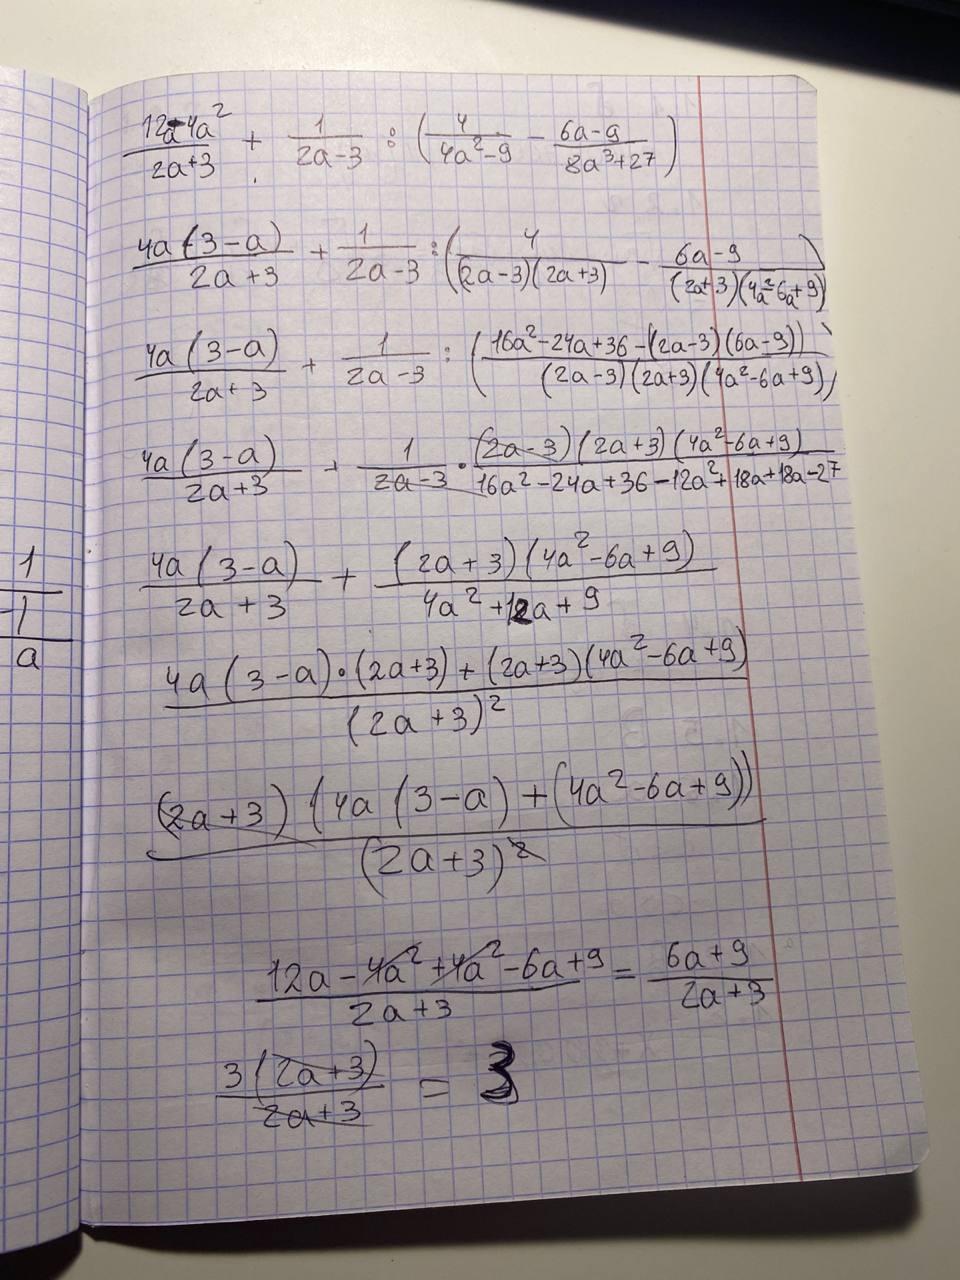 (12a-4a²)/(2a+3) + 1/(2a-3) : (4/(4a²-9) - (6a-9)/(8a³+27))
4a(3-a)/(2a+3) + 1/(2a-3) : (4/((2a-3)(2a+3)) - (6a-9)/((2a+3)(4a²-6a+9)))
4a(3-a)/(2a+3) + 1/(2a-3) : ((16a²-24a+36-(2a-3)(6a-9))/((2a-3)(2a+3)(4a²-6a+9)))
4a(3-a)/(2a+3) + 1/(2a-3) · (2a-3)(2a+3)(4a²-6a+9)/(16a²-24a+36-12a²+18a+18a-27)
1
1
a
4a(3-a)/(2a+3) + (2a+3)(4a²-6a+9)/(4a²+12a+9)
(4a(3-a)·(2a+3)+(2a+3)(4a²-6a+9))/(2a+3)²
(2a+3)(4a(3-a)+(4a²-6a+9))/(2a+3)²
(12a-4a²+4a²-6a+9)/(2a+3) = (6a+9)/(2a+3)
3(2a+3)/(2a+3) = 3